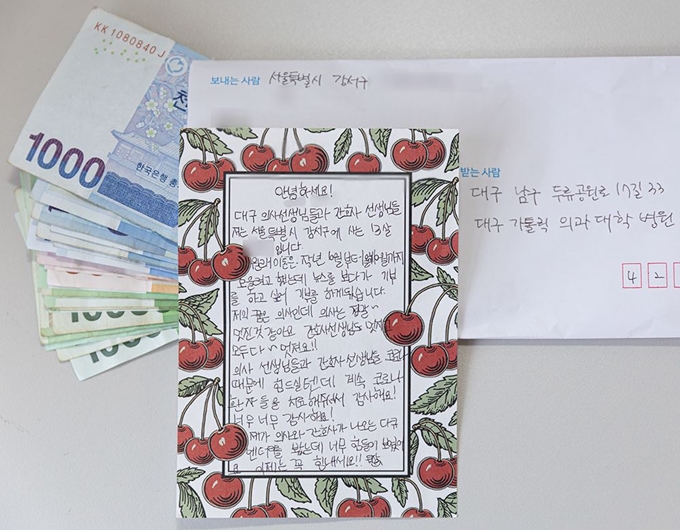 KK 1080840 J
1000
천
한국은행 총
1000
보내는 사람 서울특별시 강서구
받는 사람
대구 남구 두류공원로 17길 33
대구 가톨릭 의과 대학 병원
4 2
안녕하세요!
대구 의사선생님들과 간호사 선생님들
저는 서울특별시 강서구에 사는 13살
입니다.
원래 이돈은 작년 부터
모을려고 했는데 뉴스를 보다가 기부
를 하고 싶어 기부를 하게되었습니다.
저의 꿈은 의사인데 의사는 정말~
멋진것 같아요 간호사선생님도 멋지고
모두다~ 멋져요!!
의사 선생님들과 간호사 선생님들 코로나
때문에 힘드실텐데 계속 코로나
환자들을 치료해주셔서 감사해요!
너무너무 감사해요!
제가 의사와 간호사가 나오는 다큐
멘터리를 봤는데 너무 힘들어 보였어
요 이제는 꼭 힘내세요!!